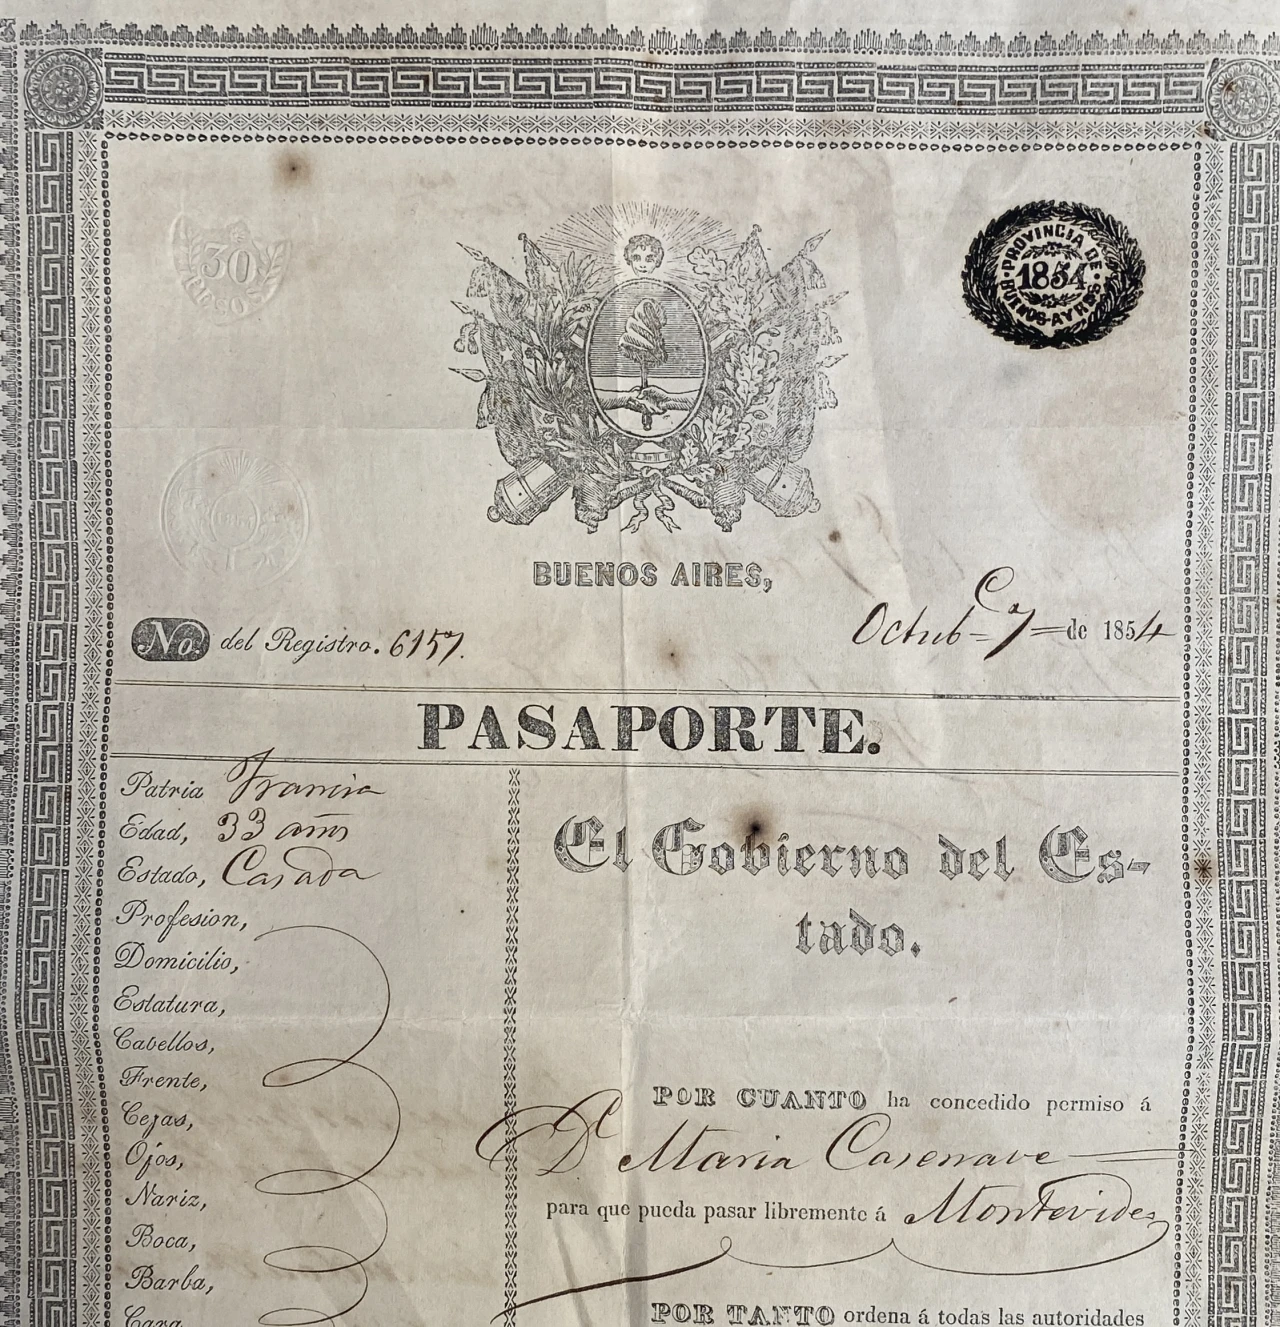 30
PESOS
PROVINCIA DE
1854
BUENOS-AYRES
BUENOS AIRES,
No. del Registro. 6157.
Octub^e 7 de 1854
PASAPORTE.
Patria Francia
Edad, 33 años
Estado, Casada
Profesion,
Domicilio,
Estatura,
Cabellos,
Frente,
Cejas,
Ojos,
Nariz,
Boca,
Barba,
Cara
El Gobierno del Es-
tado.
POR CUANTO ha concedido permiso á
Dª Maria Casenave
para que pueda pasar libremente á Montevideo
POR TANTO ordena á todas las autoridades